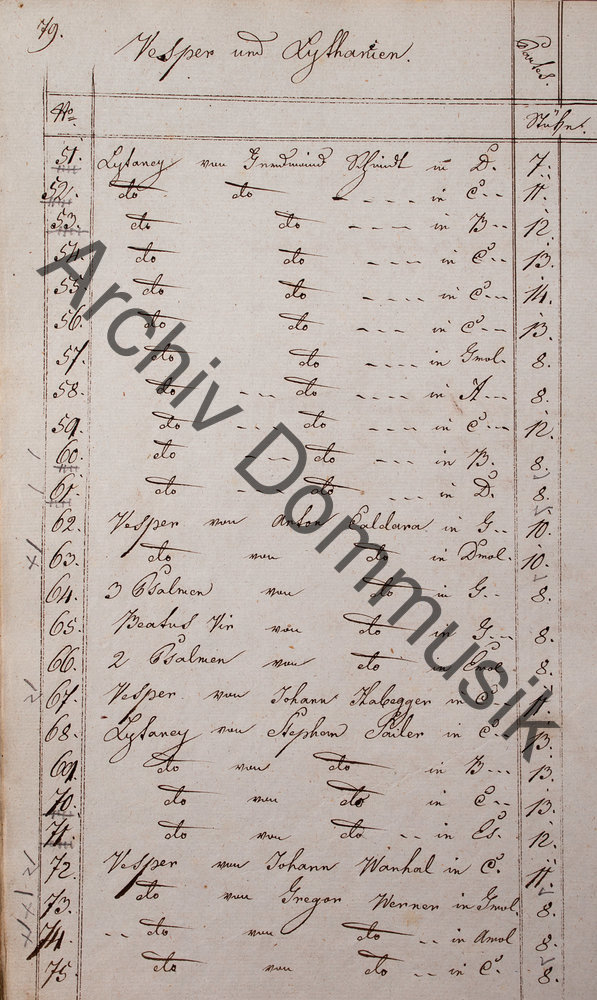 79.
Vesper und Lythanien.
Partes.
No. Stücke.
51. Lytaney von Ferdinand Schmidt in D. 7.
52. do do - - - - in C - - 11.
53. do do - - - - in B - - 12.
54. do do - - - - in C - - 13.
55. do do - - - - in C - - 14.
56. do do - - - - in C - - 13.
57. do do - - - - in Gmol. 8.
58. do - - - do - - - - in A - - 8.
59. do - - - do - - - - in C - - 12.
60. do - - - do - - - - in B. 8.
61. do - - - do - - - - in D. 8.
62. Vesper von Anton Caldara in G - - 10.
63. do von do in Dmol. 10.
64. 3 Psalmen von do in G - - 8.
65. Beatus Vir von do in G - - - 8.
66. 2 Psalmen von do in Emol 8.
67. Vesper von Johann Habegger in C - - 11.
68. Lytaney von Stephan Sailer in C - - 13.
69. do von do in B - - - 13.
70. do von do in C - - 13.
71. do von do - - in Es. 12.
72. Vesper von Johann Wanhal in C. 11.
73. do von Gregor Werner in Gmol. 8.
74. - - do von do - - in Amol 8.
75. do von do - - in C. 8.
Archiv Dommusik